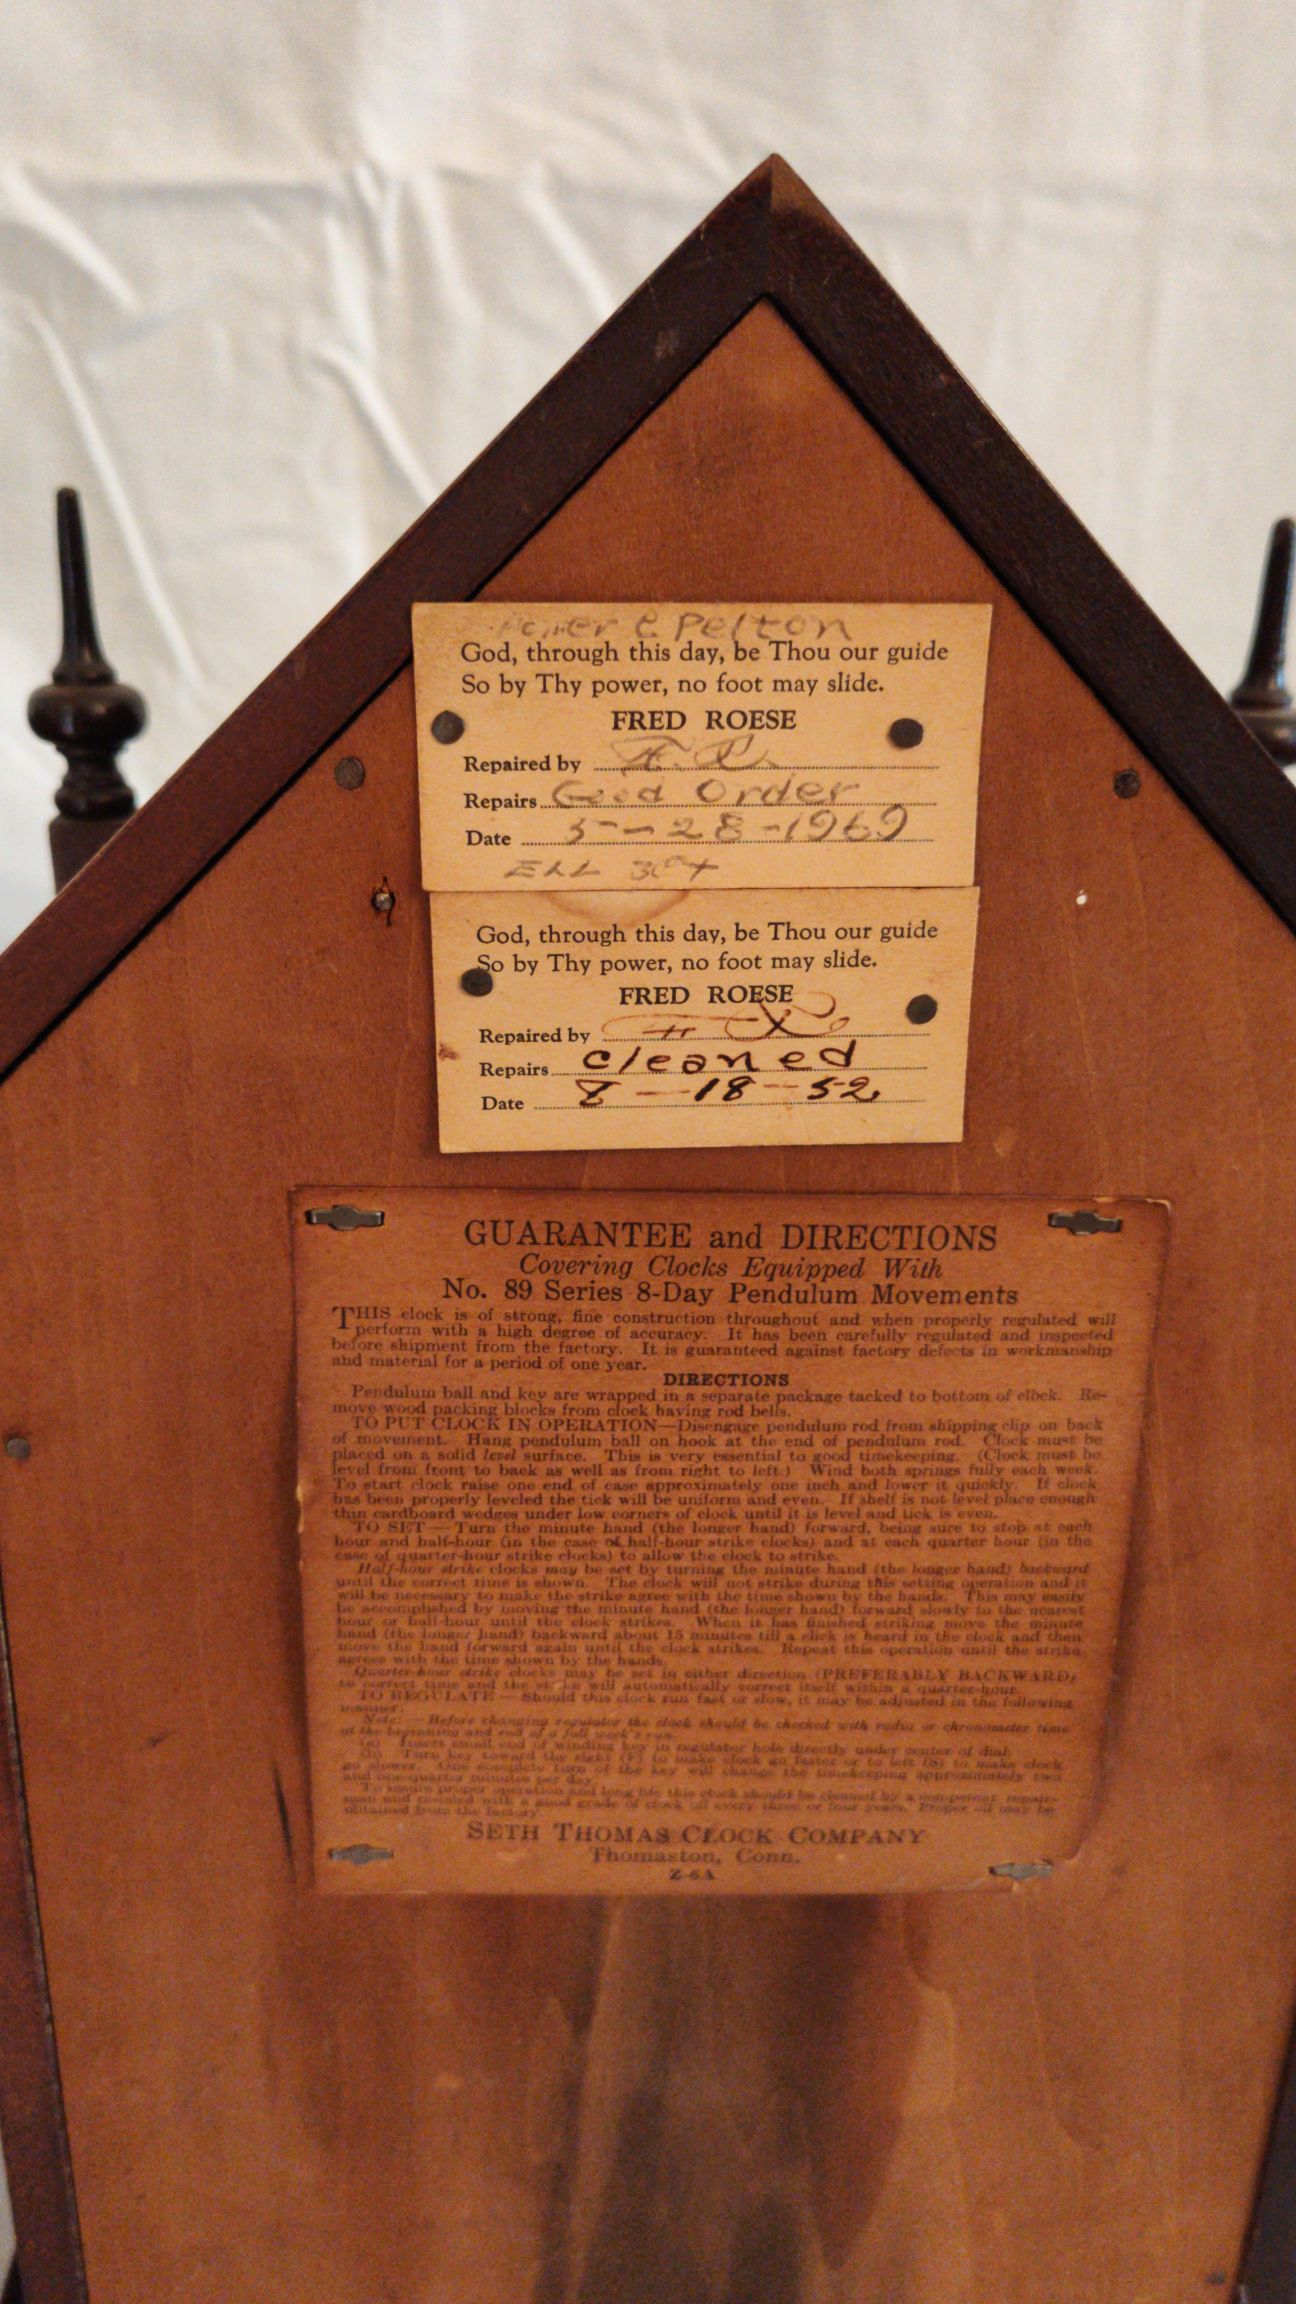 E Pelton
God, through this day, be Thou our guide
So by Thy power, no foot may slide.
FRED ROESE
Repaired by F. R.
Repairs Good Order
Date 5-28-1969
God, through this day, be Thou our guide
So by Thy power, no foot may slide.
FRED ROESE
Repaired by F R
Repairs cleaned
Date 8-18-52
GUARANTEE and DIRECTIONS
Covering Clocks Equipped With
No. 89 Series 8-Day Pendulum Movements
THIS clock is of strong, fine construction throughout and when properly regulated will
perform with a high degree of accuracy. It has been carefully regulated and inspected
before shipment from the factory. It is guaranteed against factory defects in workmanship
and material for a period of one year.
DIRECTIONS
Pendulum ball and key are wrapped in a separate package tacked to bottom of clock. Re-
move wood packing blocks from clock having rod bells.
TO PUT CLOCK IN OPERATION—Disengage pendulum rod from shipping clip on back
of movement. Hang pendulum ball on hook at the end of pendulum rod. Clock must be
placed on a solid level surface. This is very essential to good timekeeping. (Clock must be
level from front to back as well as from right to left.) Wind both springs fully each week.
To start clock raise one end of case approximately one inch and lower it quickly. If clock
has been properly leveled the tick will be uniform and even. If shelf is not level place enough
thin cardboard wedges under low corners of clock until it is level and tick is even.
TO SET — Turn the minute hand (the longer hand) forward, being sure to stop at each
hour and half-hour (in the case of half-hour strike clocks) and at each quarter hour (in the
case of quarter-hour strike clocks) to allow the clock to strike.
Half-hour strike clocks may be set by turning the minute hand (the longer hand) backward
until the correct time is shown. The clock will not strike during this setting operation and it
will be necessary to make the strike agree with the time shown by the hands. This may easily
be accomplished by moving the minute hand (the longer hand) forward slowly to the nearest
hour or half-hour until the clock strikes. When it has finished striking move the minute
hand (the longer hand) backward about 15 minutes till a click is heard in the clock and then
move the hand forward again until the clock strikes. Repeat this operation until the strike
agrees with the time shown by the hands.
Quarter-hour strike clocks may be set in either direction (PREFERABLY BACKWARD)
to correct time and the strike will automatically correct itself within a quarter-hour.
TO REGULATE — Should this clock run fast or slow, it may be adjusted in the following
manner:
Note: — Before changing regulator the clock should be checked with radio or chronometer time
at the beginning and end of a full week's run.
(a) Insert small end of winding key in regulator hole directly under center of dial.
(b) Turn key toward the right (F) to make clock go faster or to left (S) to make clock
go slower. One complete turn of the key will change the timekeeping approximately two
and one-quarter minutes per day.
To insure proper operation and long life this clock should be cleaned by a competent repair-
man and re-oiled with a good grade of clock oil every three or four years. Proper oil may be
obtained from the factory.
SETH THOMAS CLOCK COMPANY
Thomaston, Conn.
Z-6A